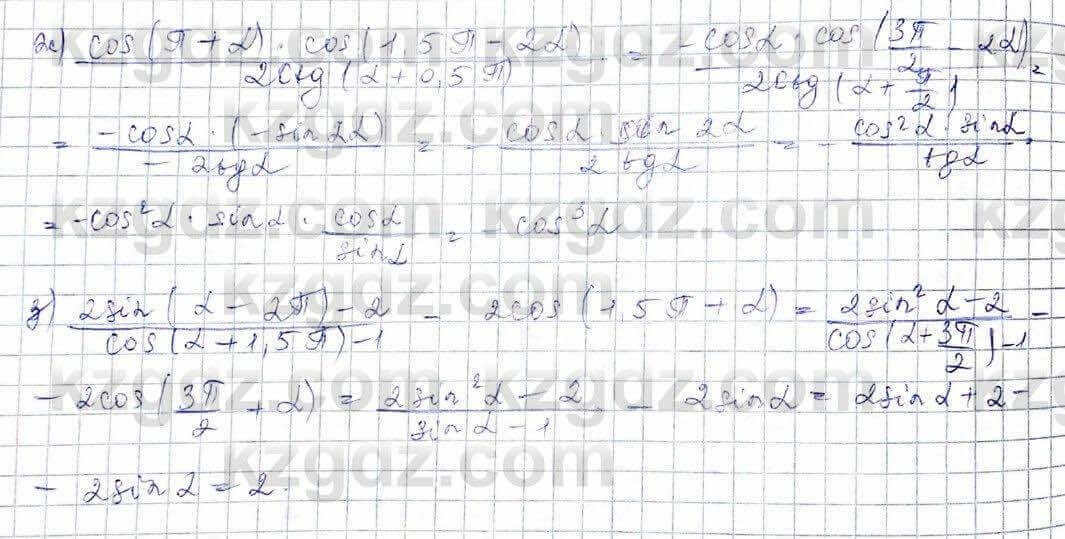 ж) cos(π+α)·cos(1,5π−2α) / 2ctg(α+0,5π) = −cosα·cos(3π/2 − 2α) / 2ctg(α+π/2) =
= −cosα·(−sin2α) / −2tgα = − cosα·sin 2α / 2 tgα = − cos²α·sinα / tgα =
= −cos²α·sinα· cosα / sinα = −cos³α
з) 2sin(α−2π)−2 / cos(α+1,5π)−1 − 2cos(1,5π+α) = 2sin²α−2 / cos(α+3π/2)−1 −
− 2cos(3π/2 + α) = 2sin²α − 2 / sinα − 1 − 2sinα = 2sinα+2−
− 2sinα = 2.
kzgdz.com